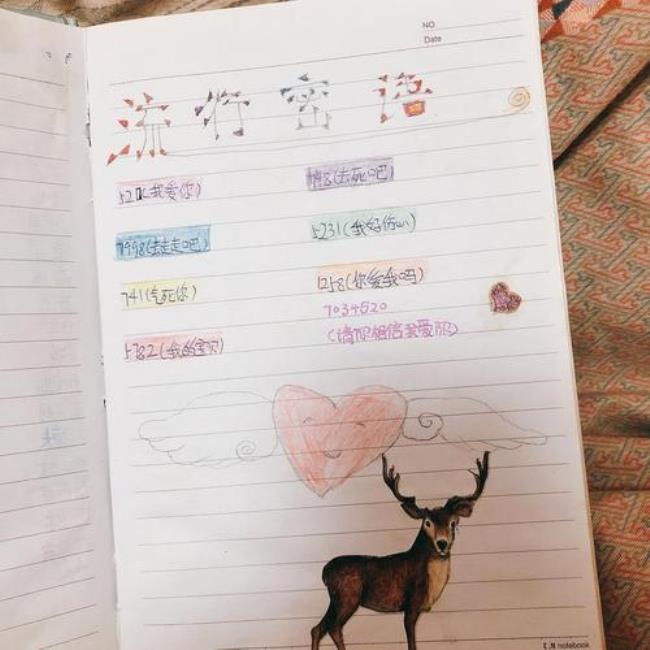 NO
Date
流行密语
521(我爱你)
748(去死吧)
7998(去走走吧)
5231(我好伤心)
741(气死你)
1258(你爱我吗)
7034520
(请你相信我爱你)
5782(我的宝贝)
notebook